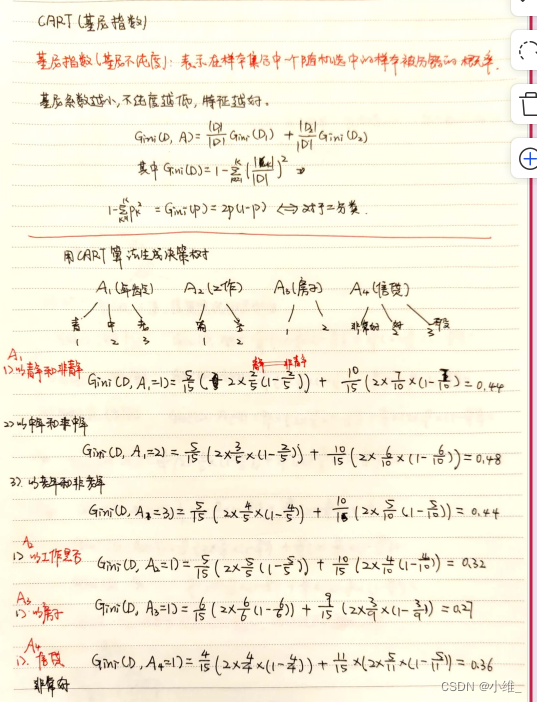 CART(基尼指数)
基尼指数(基尼不纯度): 表示在样本集合中一个随机选中的样本被分错的概率.
基尼系数越小, 不纯度越低, 特征越好.
Gini(D, A) = |D₁|/|D| Gini(D₁) + |D₂|/|D| Gini(D₂)
其中 Gini(D) = 1 - Σ(k=1..K) (|Ck|/|D|)²
1 - Σ(k=1..K) Pk² = Gini(p) = 2p(1-p) ⟺ 对于二分类.
用CART算法生成决策树
A₁(年龄) A₂(工作) A₃(房子) A₄(信贷)
青 中 老 非常好 好
1 2 3 1 2 1 2 1 2 3
A₁
1) 以青年和非青年
青年 非青年
Gini(D, A₁=1) = 5/15 (2×2/5(1-2/5)) + 10/15 (2×7/10×(1-7/10)) = 0.44
2) 以中年和非中年
Gini(D, A₁=2) = 5/15 (2×3/5×(1-3/5)) + 10/15 (2×6/10×(1-6/10)) = 0.48
3) 以老年和非老年
Gini(D, A₁=3) = 5/15 (2×4/5×(1-4/5)) + 10/15 (2×5/10 (1-5/10)) = 0.44
A₂
1) 以工作是否
Gini(D, A₂=1) = 5/15 (2×5/5 (1-5/5)) + 10/15 (2×4/10 (1-4/10)) = 0.32
A₃
1) 以房子
Gini(D, A₃=1) = 6/15 (2×6/6 (1-6/6)) + 9/15 (2×3/9×(1-3/9)) = 0.27
A₄
1). 信贷
非常好
Gini(D, A₄=1) = 4/15 (2×4/4×(1-4/4)) + 11/15 ×(2×5/11×(1-5/11)) = 0.36
CSDN @小维_